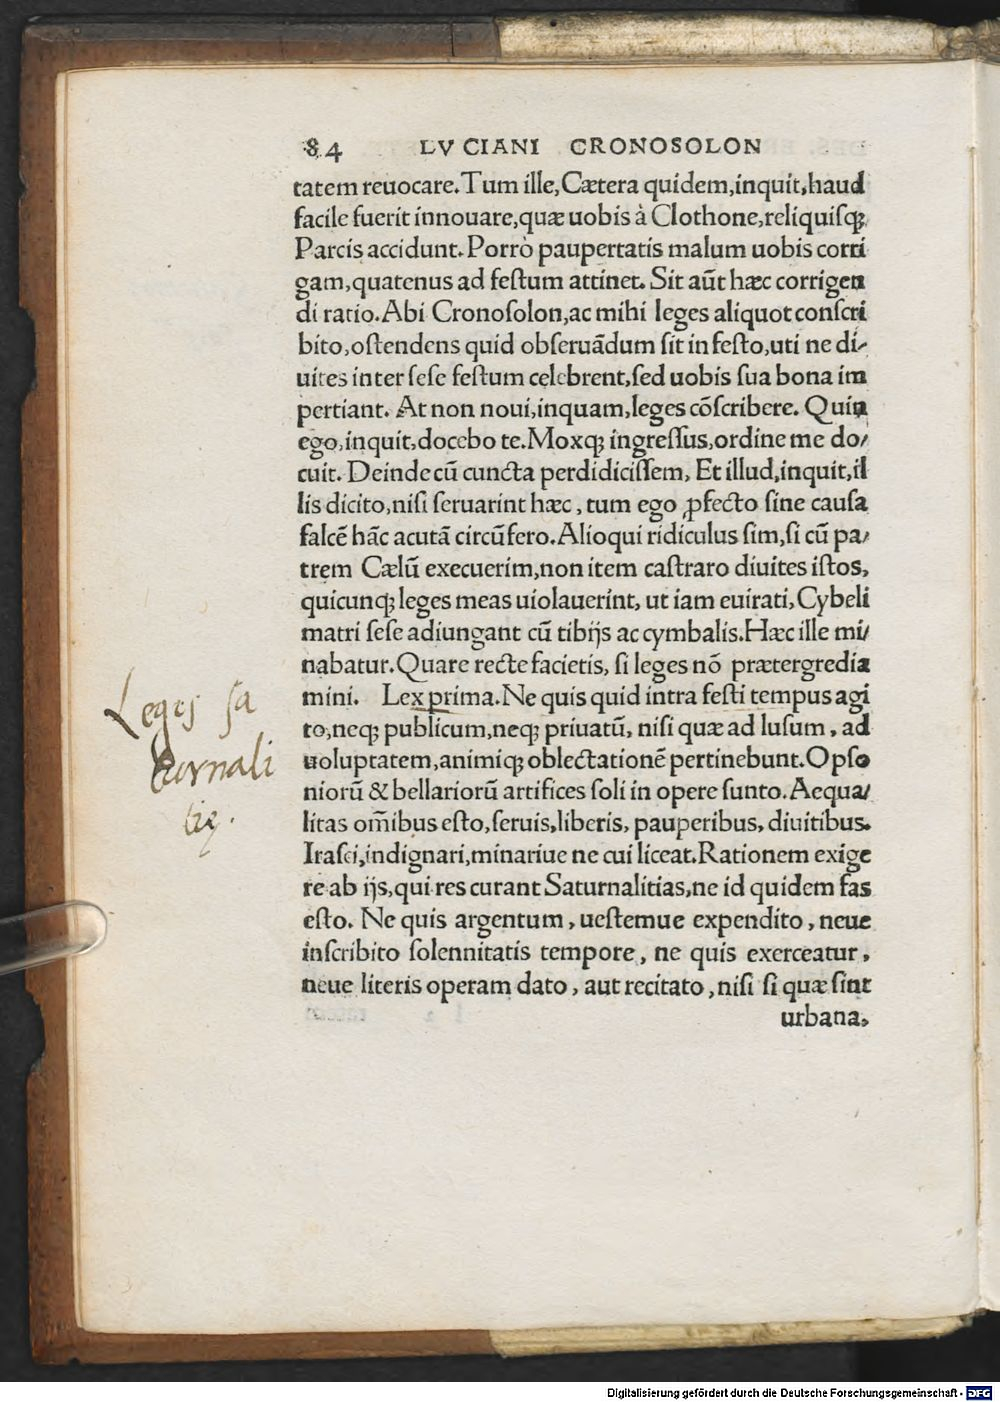 84 LVCIANI CRONOSOLON
tatem reuocare. Tum ille, Cætera quidem, inquit, haud
facile fuerit innouare, quæ uobis à Clothone, reliquisq;
Parcis accidunt. Porrò paupertatis malum uobis corri
gam, quatenus ad festum attinet. Sit aūt hæc corrigen
di ratio. Abi Cronosolon, ac mihi leges aliquot conscri
bito, ostendens quid obseruādum sit in festo, uti ne di-
uites inter sese festum celebrent, sed uobis sua bona im
pertiant. At non noui, inquam, leges cōscribere. Quin
ego, inquit, docebo te. Moxq; ingressus, ordine me do-
cuit. Deinde cū cuncta perdidicissem, Et illud, inquit, il
lis dicito, nisi seruarint hæc, tum ego ꝓfecto sine causa
falcē hāc acutā circūfero. Alioqui ridiculus sim, si cū pa-
trem Cælū execuerim, non item castraro diuites istos,
quicunq; leges meas uiolauerint, ut iam euirati, Cybeli
matri sese adiungant cū tibijs ac cymbalis. Hæc ille mi-
nabatur. Quare recte facietis, si leges nō prætergredia
mini. Lex prima. Ne quis quid intra festi tempus agi
to, neq; publicum, neq; priuatū, nisi quæ ad lusum, ad
uoluptatem, animiq; oblectationē pertinebunt. Opso
niorū & bellariorū artifices soli in opere sunto. Aequa-
litas om̄ibus esto, seruis, liberis, pauperibus, diuitibus.
Irasci, indignari, minariue ne cui liceat. Rationem exige
re ab ijs, qui res curant Saturnalitias, ne id quidem fas
esto. Ne quis argentum, uestemue expendito, neue
inscribito solennitatis tempore, ne quis exerceatur,
neue literis operam dato, aut recitato, nisi si quæ sint
urbana,
Leges sa
turnali
tię.
Digitalisierung gefördert durch die Deutsche Forschungsgemeinschaft - DFG